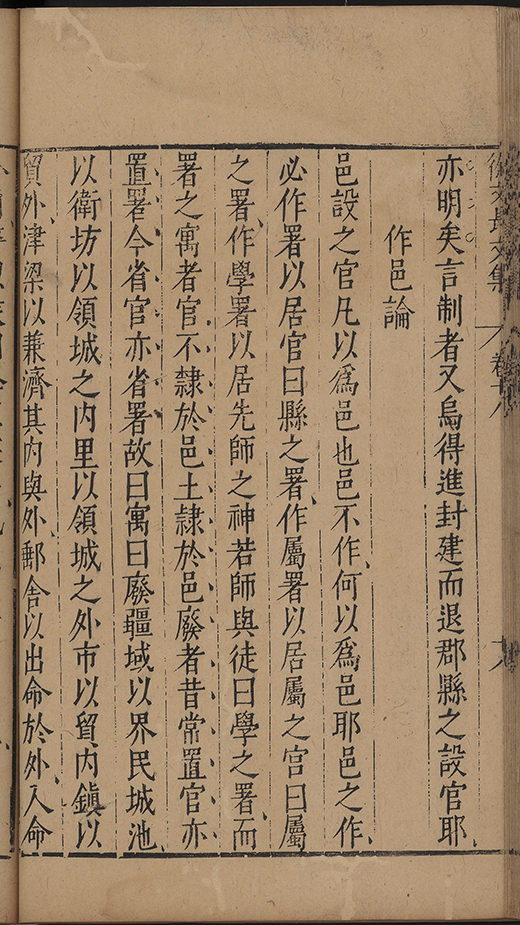 徐文長文集 卷十八
亦明矣言制者又烏得進封建而退郡縣之設官耶
作邑論
邑設之官凡以爲邑也邑不作何以爲邑耶邑之作
必作署以居官曰縣之署作屬署以居屬之官曰屬
之署作學署以居先師之神若師與徒曰學之署而
署之寓者官不隸於邑土隸於邑廢者昔常置官亦
置署今省官亦省署故曰寓曰廢疆域以界民城池
以衛坊以領城之内里以領城之外市以貿内鎮以
貿外津梁以兼濟其内與外郵舍以出命於外入命